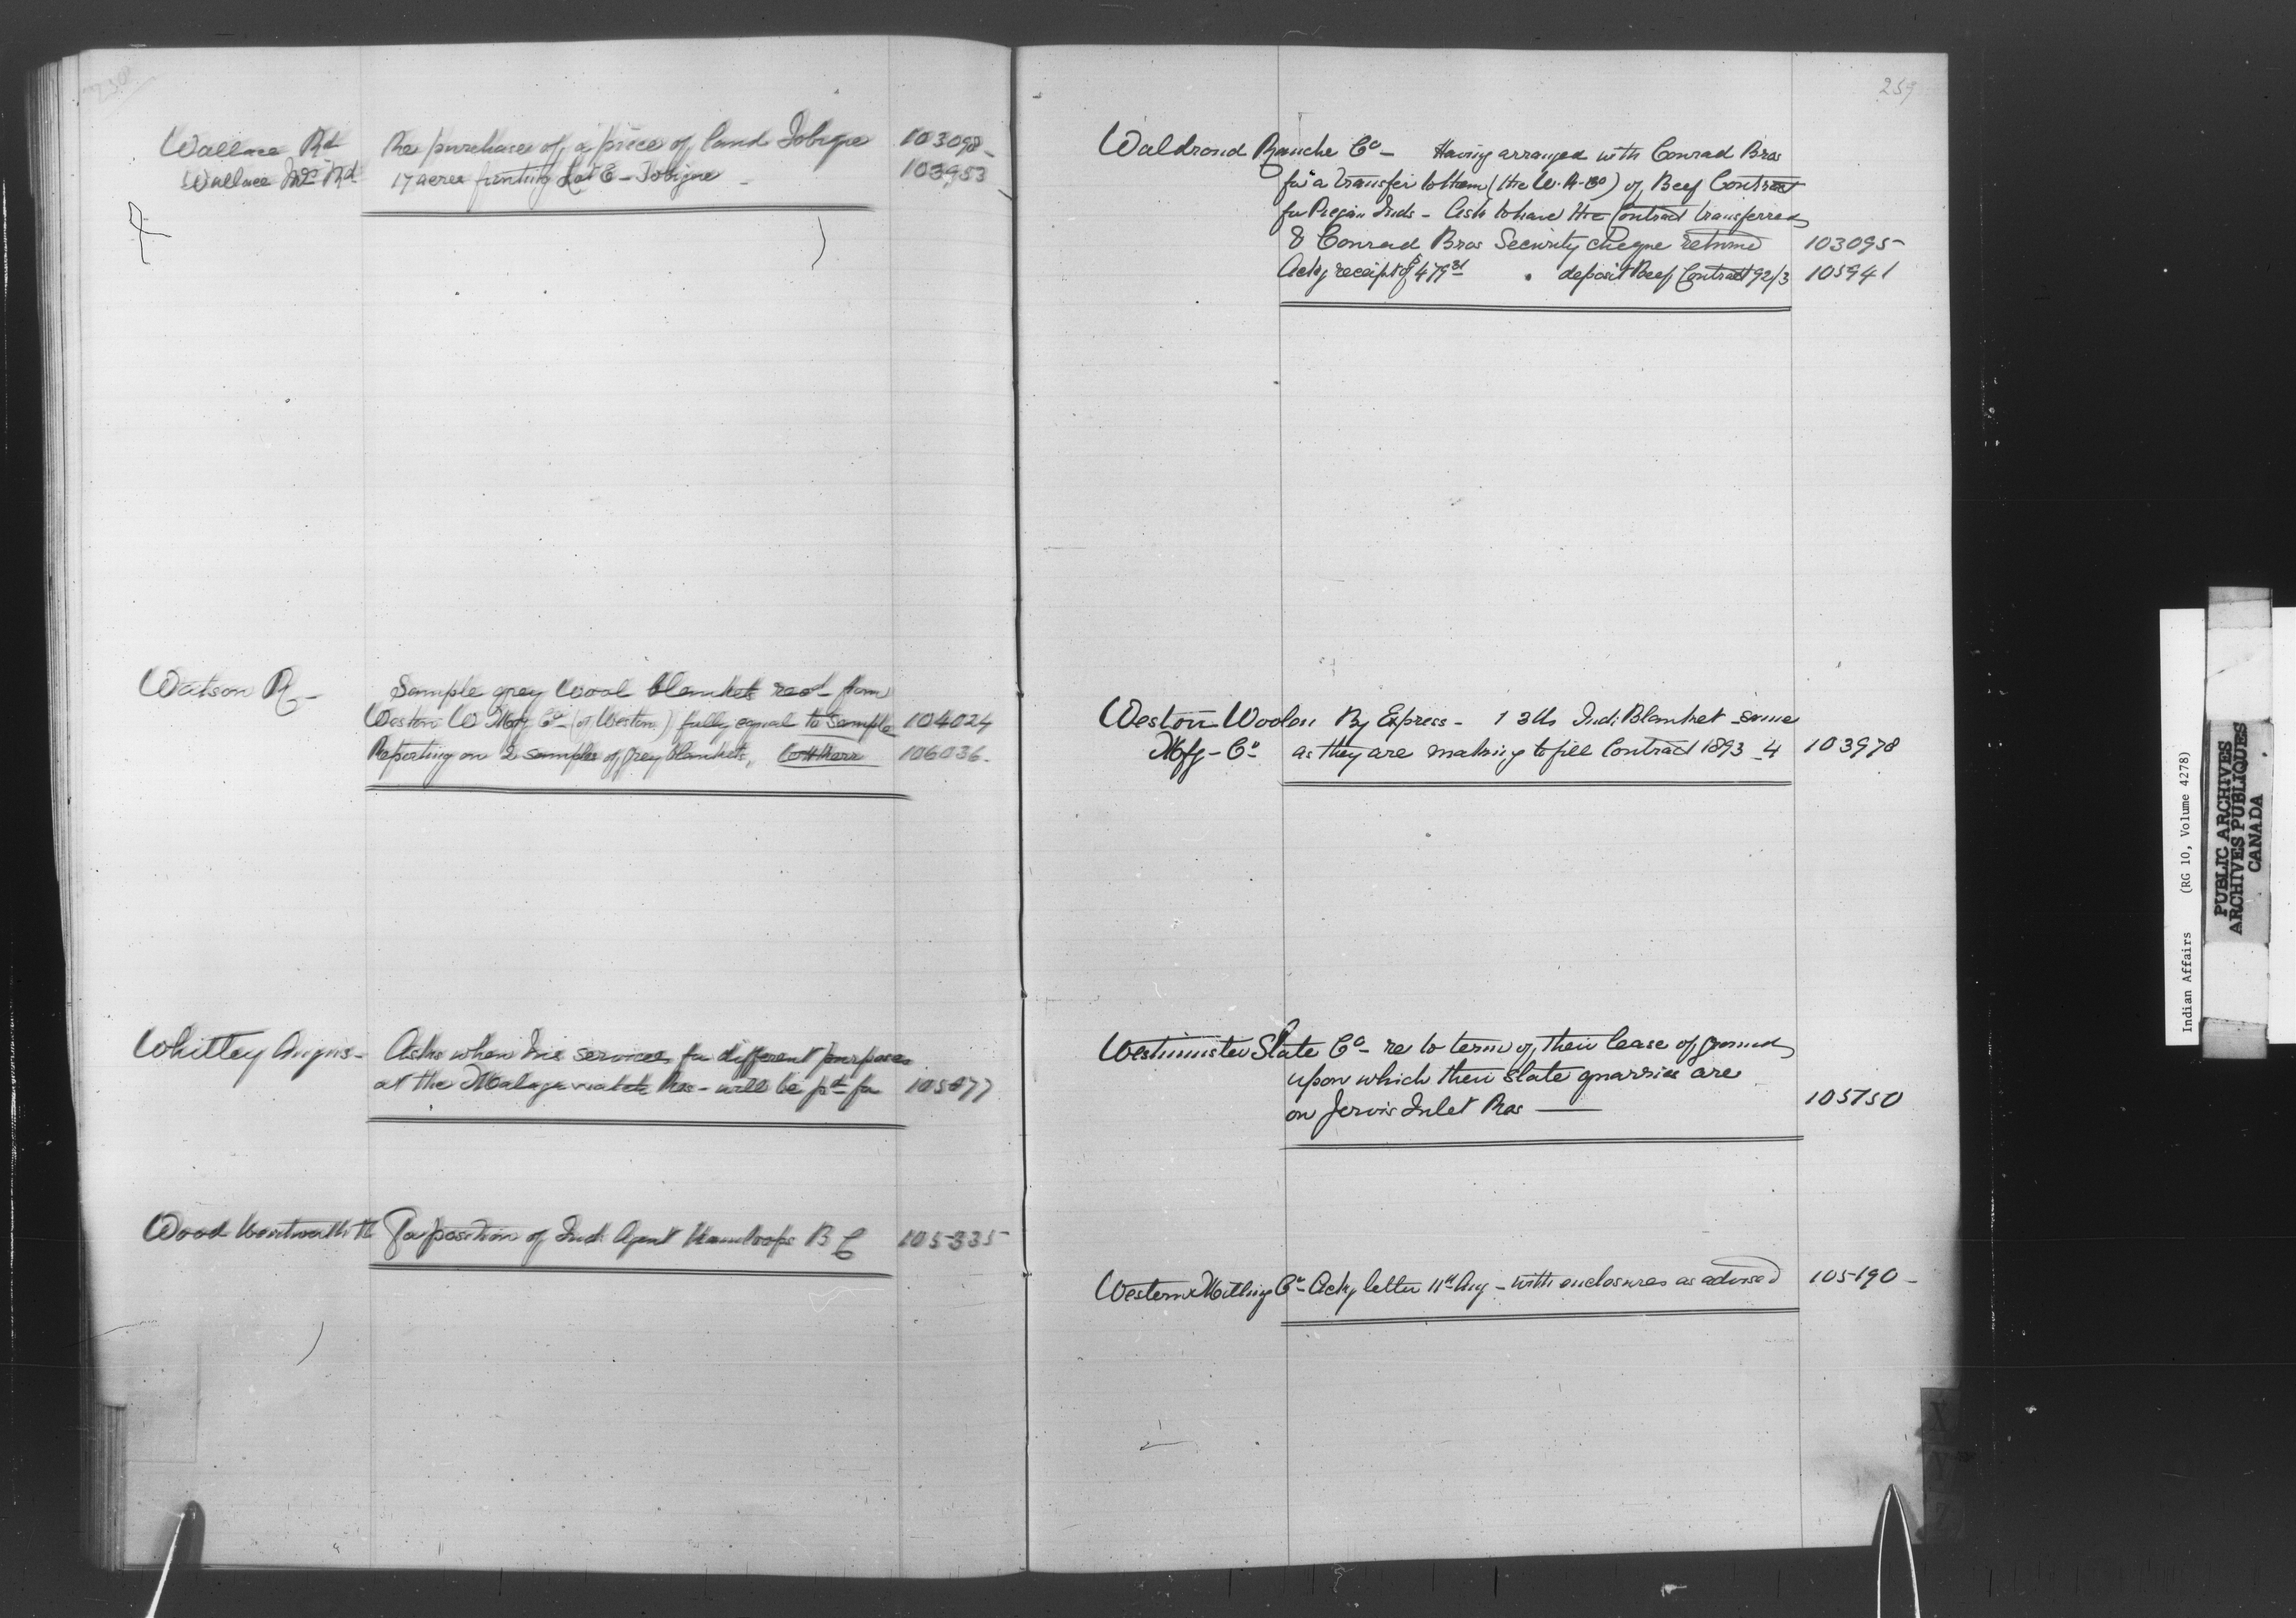 258
Wallace Rd Re purchase of a piece of land Tobique 103098
Wallace Rd 17 acres fronting Lot E - Tobique - 103953
Watson R - Sample grey Wool blankets recd from
Weston W Mfg Co - (of Weston) fully equal to sample 104024
Reporting on 2 samples of grey blankets, 106036
Whitley Angus - Asks when his services for different purposes
at the Malagawatch Res - will be pd for 105877
Wood Wentworth For position of Ind Agent Kamloops B C 105335
259
Waldrond Ranche Co - Having arranged with Conrad Bros
for a transfer to them (the W. R. Co) of Beef Contract
for Piegan Inds - Asks to have the Contract transferred
& Conrad Bros Security cheque returned 103095
Ackg receipt of $479 deposit Beef Contract 92/3 105941
Weston Woolen By Express - 1 3 lb Ind: Blanket - same
Mfg - Co as they are making to fill Contract 1893 - 4 103978
Westminster Slate Co - re to term of their lease of ground
upon which their Slate quarries are
on Jervis Inlet Res — 105750
Western Milling Co - Ackg letter 11th Aug - with enclosures as advised 105190 -
Indian Affairs (RG 10, Volume 4278)
PUBLIC ARCHIVES
ARCHIVES PUBLIQUES
CANADA